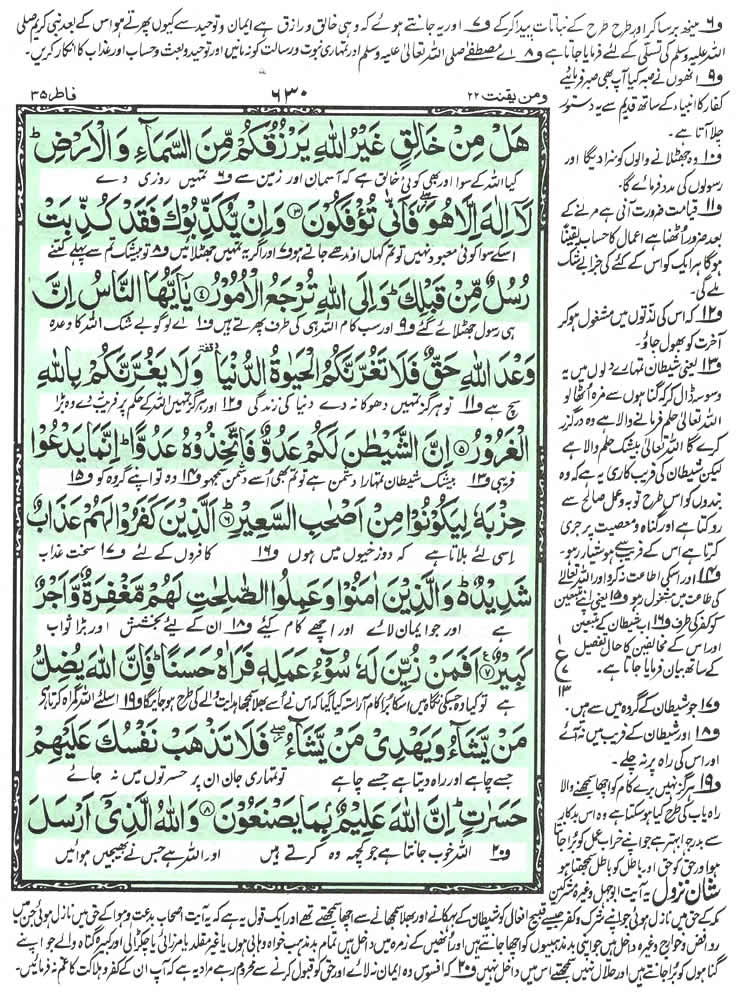 و۶ مینھ برسا کر اور طرح طرح کے نباتات پیدا کر کے و۷ اور یہ جانتے ہوئے کہ وہی خالق و رازق ہے ایمان و توحید سے کیوں پھرتے ہو اس کے بعد نبی کریم صلی
اللہ علیہ وسلم کی تسلی کے لئے فرمایا جاتا ہے و۸ اے مصطفےٰ صلی اللہ تعالیٰ علیہ وسلم اور تمہاری نبوت و رسالت کو نہ مانیں اور توحید و بعث و حساب اور عذاب کا انکار کریں۔
ومن یقنت ۲۲
۶۳۰
فاطر ۳۵
هَلْ مِنْ خَالِقٍ غَيْرُ اللّٰهِ يَرْزُقُكُمْ مِّنَ السَّمَآءِ وَالْاَرْضِ ؕ
کیا اللہ کے سوا اور بھی کوئی خالق ہے کہ آسمان اور زمین سے و۶ تمہیں روزی دے
لَاۤ اِلٰهَ اِلَّا هُوَ ۖ فَاَنّٰى تُؤْفَكُوْنَ ۝۳ وَاِنْ يُّكَذِّبُوْكَ فَقَدْ كُذِّبَتْ
اسکے سوا کوئی معبود نہیں تو تم کہاں اوندھے جاتے ہو و۷ اور اگر یہ تمہیں جھٹلائیں و۸ تو بیشک تم سے پہلے کتنے
رُسُلٌ مِّنْ قَبْلِكَ ؕ وَاِلَى اللّٰهِ تُرْجَعُ الْاُمُوْرُ ۝۴ يٰۤاَيُّهَا النَّاسُ اِنَّ
ہی رسول جھٹلائے گئے و۹ اور سب کام اللہ ہی کی طرف پھرتے ہیں و۱۰ اے لوگو بے شک اللہ کا وعدہ
وَعْدَ اللّٰهِ حَقٌّ فَلَا تَغُرَّنَّكُمُ الْحَيٰوةُ الدُّنْيَا ۥ وَلَا يَغُرَّنَّكُمْ بِاللّٰهِ
سچ ہے و۱۱ تو ہرگز تمہیں دھوکا نہ دے دنیا کی زندگی و۱۲ اور ہرگز تمہیں اللہ کے حکم پر فریب نہ دے وہ بڑا
الْغَرُوْرُ ۝۵ اِنَّ الشَّيْطٰنَ لَكُمْ عَدُوٌّ فَاتَّخِذُوْهُ عَدُوًّا ؕ اِنَّمَا يَدْعُوْا
فریبی و۱۳ بیشک شیطان تمہارا دشمن ہے تو تم بھی اُسے دشمن سمجھو و۱۴ وہ تو اپنے گروہ کو و۱۵
حِزْبَهٗ لِيَكُوْنُوْا مِنْ اَصْحٰبِ السَّعِيْرِ ۝۶ اَلَّذِيْنَ كَفَرُوْا لَهُمْ عَذَابٌ
اِسی لئے بلاتا ہے کہ دوزخیوں میں ہوں و۱۶ کافروں کے لئے و۱۷ سخت عذاب
شَدِيْدٌ ؕ وَالَّذِيْنَ اٰمَنُوْا وَعَمِلُوا الصّٰلِحٰتِ لَهُمْ مَّغْفِرَةٌ وَّاَجْرٌ
ہے اور جو ایمان لائے اور اچھے کام کئے و۱۸ ان کے لئے بخشش اور بڑا ثواب
كَبِيْرٌ ۝۷ اَفَمَنْ زُيِّنَ لَهٗ سُوْٓءُ عَمَلِهٖ فَرَاٰهُ حَسَنًا ؕ فَاِنَّ اللّٰهَ يُضِلُّ
ہے تو کیا وہ جسکی نگاہ میں اسکا بُرا کام آراستہ کیا گیا کہ اس نے اُسے بھلا سمجھا ہدایت والے کی طرح ہو جائیگا و۱۹ اسلئے اللہ گمراہ کرتا ہے
مَنْ يَّشَآءُ وَيَهْدِيْ مَنْ يَّشَآءُ ۖ فَلَا تَذْهَبْ نَفْسُكَ عَلَيْهِمْ
جسے چاہے اور راہ دیتا ہے جسے چاہے تو تمہاری جان ان پر حسرتوں میں نہ جائے
حَسَرٰتٍ ؕ اِنَّ اللّٰهَ عَلِيْمٌۢ بِمَا يَصْنَعُوْنَ ۝۸ وَاللّٰهُ الَّذِيْۤ اَرْسَلَ
و۲۰ اللہ خوب جانتا ہے جو کچھ وہ کرتے ہیں اور اللہ ہے جس نے بھیجیں ہوائیں
و۹ انھوں نے صبر کیا آپ بھی صبر فرمائیے
کفار کا انبیاء کے ساتھ قدیم سے یہ دستور
چلا آتا ہے۔
و۱۰ وہ جھٹلانے والوں کو سزا دیگا اور
رسولوں کی مدد فرمائے گا۔
و۱۱ قیامت ضرور آنی ہے مرنے کے
بعد ضرور اُٹھنا ہے اعمال کا حساب یقیناً
ہوگا ہر ایک کو اس کے کئے کی جزا بے شک
ملے گی۔
و۱۲ کہ اس کی لذتوں میں مشغول ہو کر
آخرت کو بھول جاؤ۔
و۱۳ یعنی شیطان تمہارے دلوں میں یہ
وسوسہ ڈال کر کہ گناہوں سے مزہ اُٹھا لو
اللہ تعالیٰ حلم فرمانے والا ہے وہ درگزر
کرے گا اللہ تعالیٰ بیشک حلم والا ہے
لیکن شیطان کی فریب کاری یہ ہے کہ وہ
بندوں کو اس طرح توبہ و عمل صالح سے
روکتا ہے اور گناہ و معصیت پر جری
کرتا ہے اس کے فریب سے ہوشیار رہو۔
و۱۴ اور اسکی اطاعت نہ کرو اور اللہ تعالےٰ
کی طاعت میں مشغول رہو و۱۵ یعنی اپنے متبعین
کو کفر کی طرف و۱۶ اب شیطان کے متبعین
اور اس کے مخالفین کا حال تفصیل
کے ساتھ بیان فرمایا جاتا ہے۔
۱
ع
۷
۱۳
و۱۷ جو شیطان کے گروہ میں سے ہیں۔
و۱۸ اور شیطان کے فریب میں نہ آئے
اور اس کی راہ پر نہ چلے۔
و۱۹ ہرگز نہیں برے کام کو اچھا سمجھنے والا
راہ یاب کی طرح کیا ہوسکتا ہے وہ اس بدکار
سے بدرجہا بدتر ہے جو اپنے خراب عمل کو بُرا جانتا
ہو اور حق کو حق اور باطل کو باطل سمجھتا ہو
شان نزول یہ آیت ابوجہل وغیرہ مشرکین
مکہ کے حق میں نازل ہوئی جو اپنے شرک و کفر جیسے قبیح افعال کو شیطان کے بہکانے اور بھلا سمجھانے سے اچھا سمجھتے تھے اور ایک قول یہ ہے کہ یہ آیت اصحاب بدعت و ہوا کے حق میں نازل ہوئی جن میں
روافض و خوارج وغیرہ داخل ہیں جو اپنی بد مذہبیوں کو اچھا جانتے ہیں اور اُنھیں کے زمرہ میں داخل ہیں تمام بد مذہب خواہ وہابی ہوں یا غیر مقلد یا مرزائی یا چکڑالی اور کبیرہ گناہ والے جو اپنے
گناہوں کو بُرا جانتے ہیں اور حلال نہیں سمجھتے اس میں داخل نہیں و۲۰ کہ افسوس وہ ایمان نہ لائے اور حق کو قبول کرنے سے محروم رہے مراد یہ ہے کہ آپ ان کے کفر و ہلاکت کا غم نہ فرمائیں۔